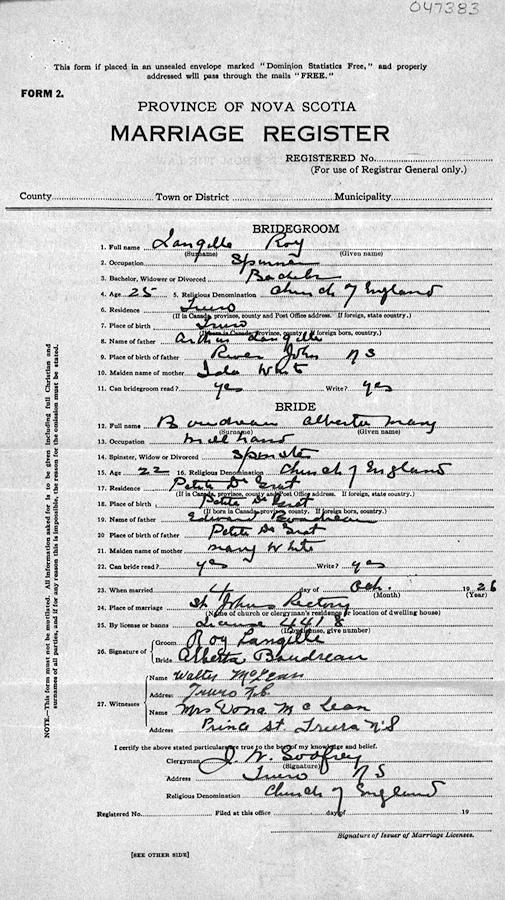 047383
This form if placed in an unsealed envelope marked "Dominion Statistics Free," and properly
addressed will pass through the mails "FREE."
FORM 2.
PROVINCE OF NOVA SCOTIA
MARRIAGE REGISTER
REGISTERED No.
(For use of Registrar General only.)
County Town or District Municipality
BRIDEGROOM
1. Full name Langille Roy
(Surname) (Given name)
2. Occupation Spinner
3. Bachelor, Widower or Divorced Bachelor
4. Age 25 5. Religious Denomination Church of England
6. Residence Truro
(If in Canada, province, county and Post Office address. If foreign, state country.)
7. Place of birth Truro
(If born in Canada, province, county. If foreign born, country.)
8. Name of father Arthur Langille
9. Place of birth of father River John N S
10. Maiden name of mother Ida White
11. Can bridegroom read? yes Write? yes
BRIDE
12. Full name Boudreau Alberta Mary
(Surname) (Given name)
13. Occupation mill hand
14. Spinster, Widow or Divorced Spinster
15. Age 22 16. Religious Denomination Church of England
17. Residence Petite De Grat
(If in Canada, province, county and Post Office address. If foreign, state country.)
18. Place of birth Petite De Grat
(If born in Canada, province, county. If foreign born, country.)
19. Name of father Edward Boudreau
20. Place of birth of father Petite De Grat
21. Maiden name of mother Mary White
22. Can bride read? yes Write? yes
23. When married 4 day of Oct. 1926
(Month) (Year)
24. Place of marriage St. Johns Rectory
(Name of church or clergyman's residence or location of dwelling house)
25. By license or banns License 4418
(If by license, give number)
26. Signature of Groom Roy Langille
Bride Alberta Boudreau
27. Witnesses Name Walter McLean
Address Truro N.S.
Name Mrs Dona McLean
Address Prince St. Truro N.S
I certify the above stated particulars are true to the best of my knowledge and belief.
Clergyman J. W. Godfrey
(Signature)
Address Truro N S
Religious Denomination Church of England
Registered No. Filed at this office day of 19
Signature of Issuer of Marriage Licenses.
[SEE OTHER SIDE]
NOTE.—This form must not be mutilated. All information asked for is to be given including full Christian and
surnames of all parties, and if for any reason this is impossible, the reason for the omission must be stated.